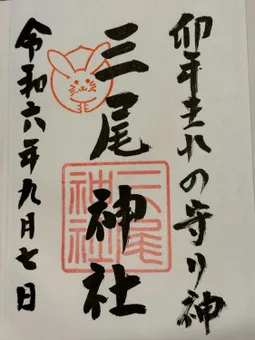 卯年生れの守り神
三尾神社
三尾神社
令和六年九月七日